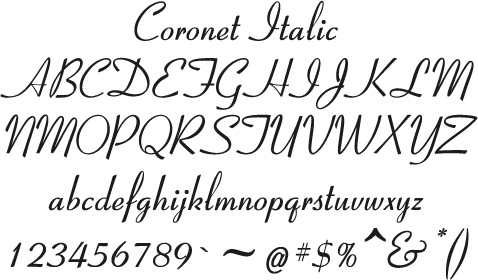 Coronet Italic
ABCDEFGHIJKLM
NMOPQRSTUVWXYZ
abcdefghijklmnopqrstuvwxyz
123456789` ~ @#$%^&*()